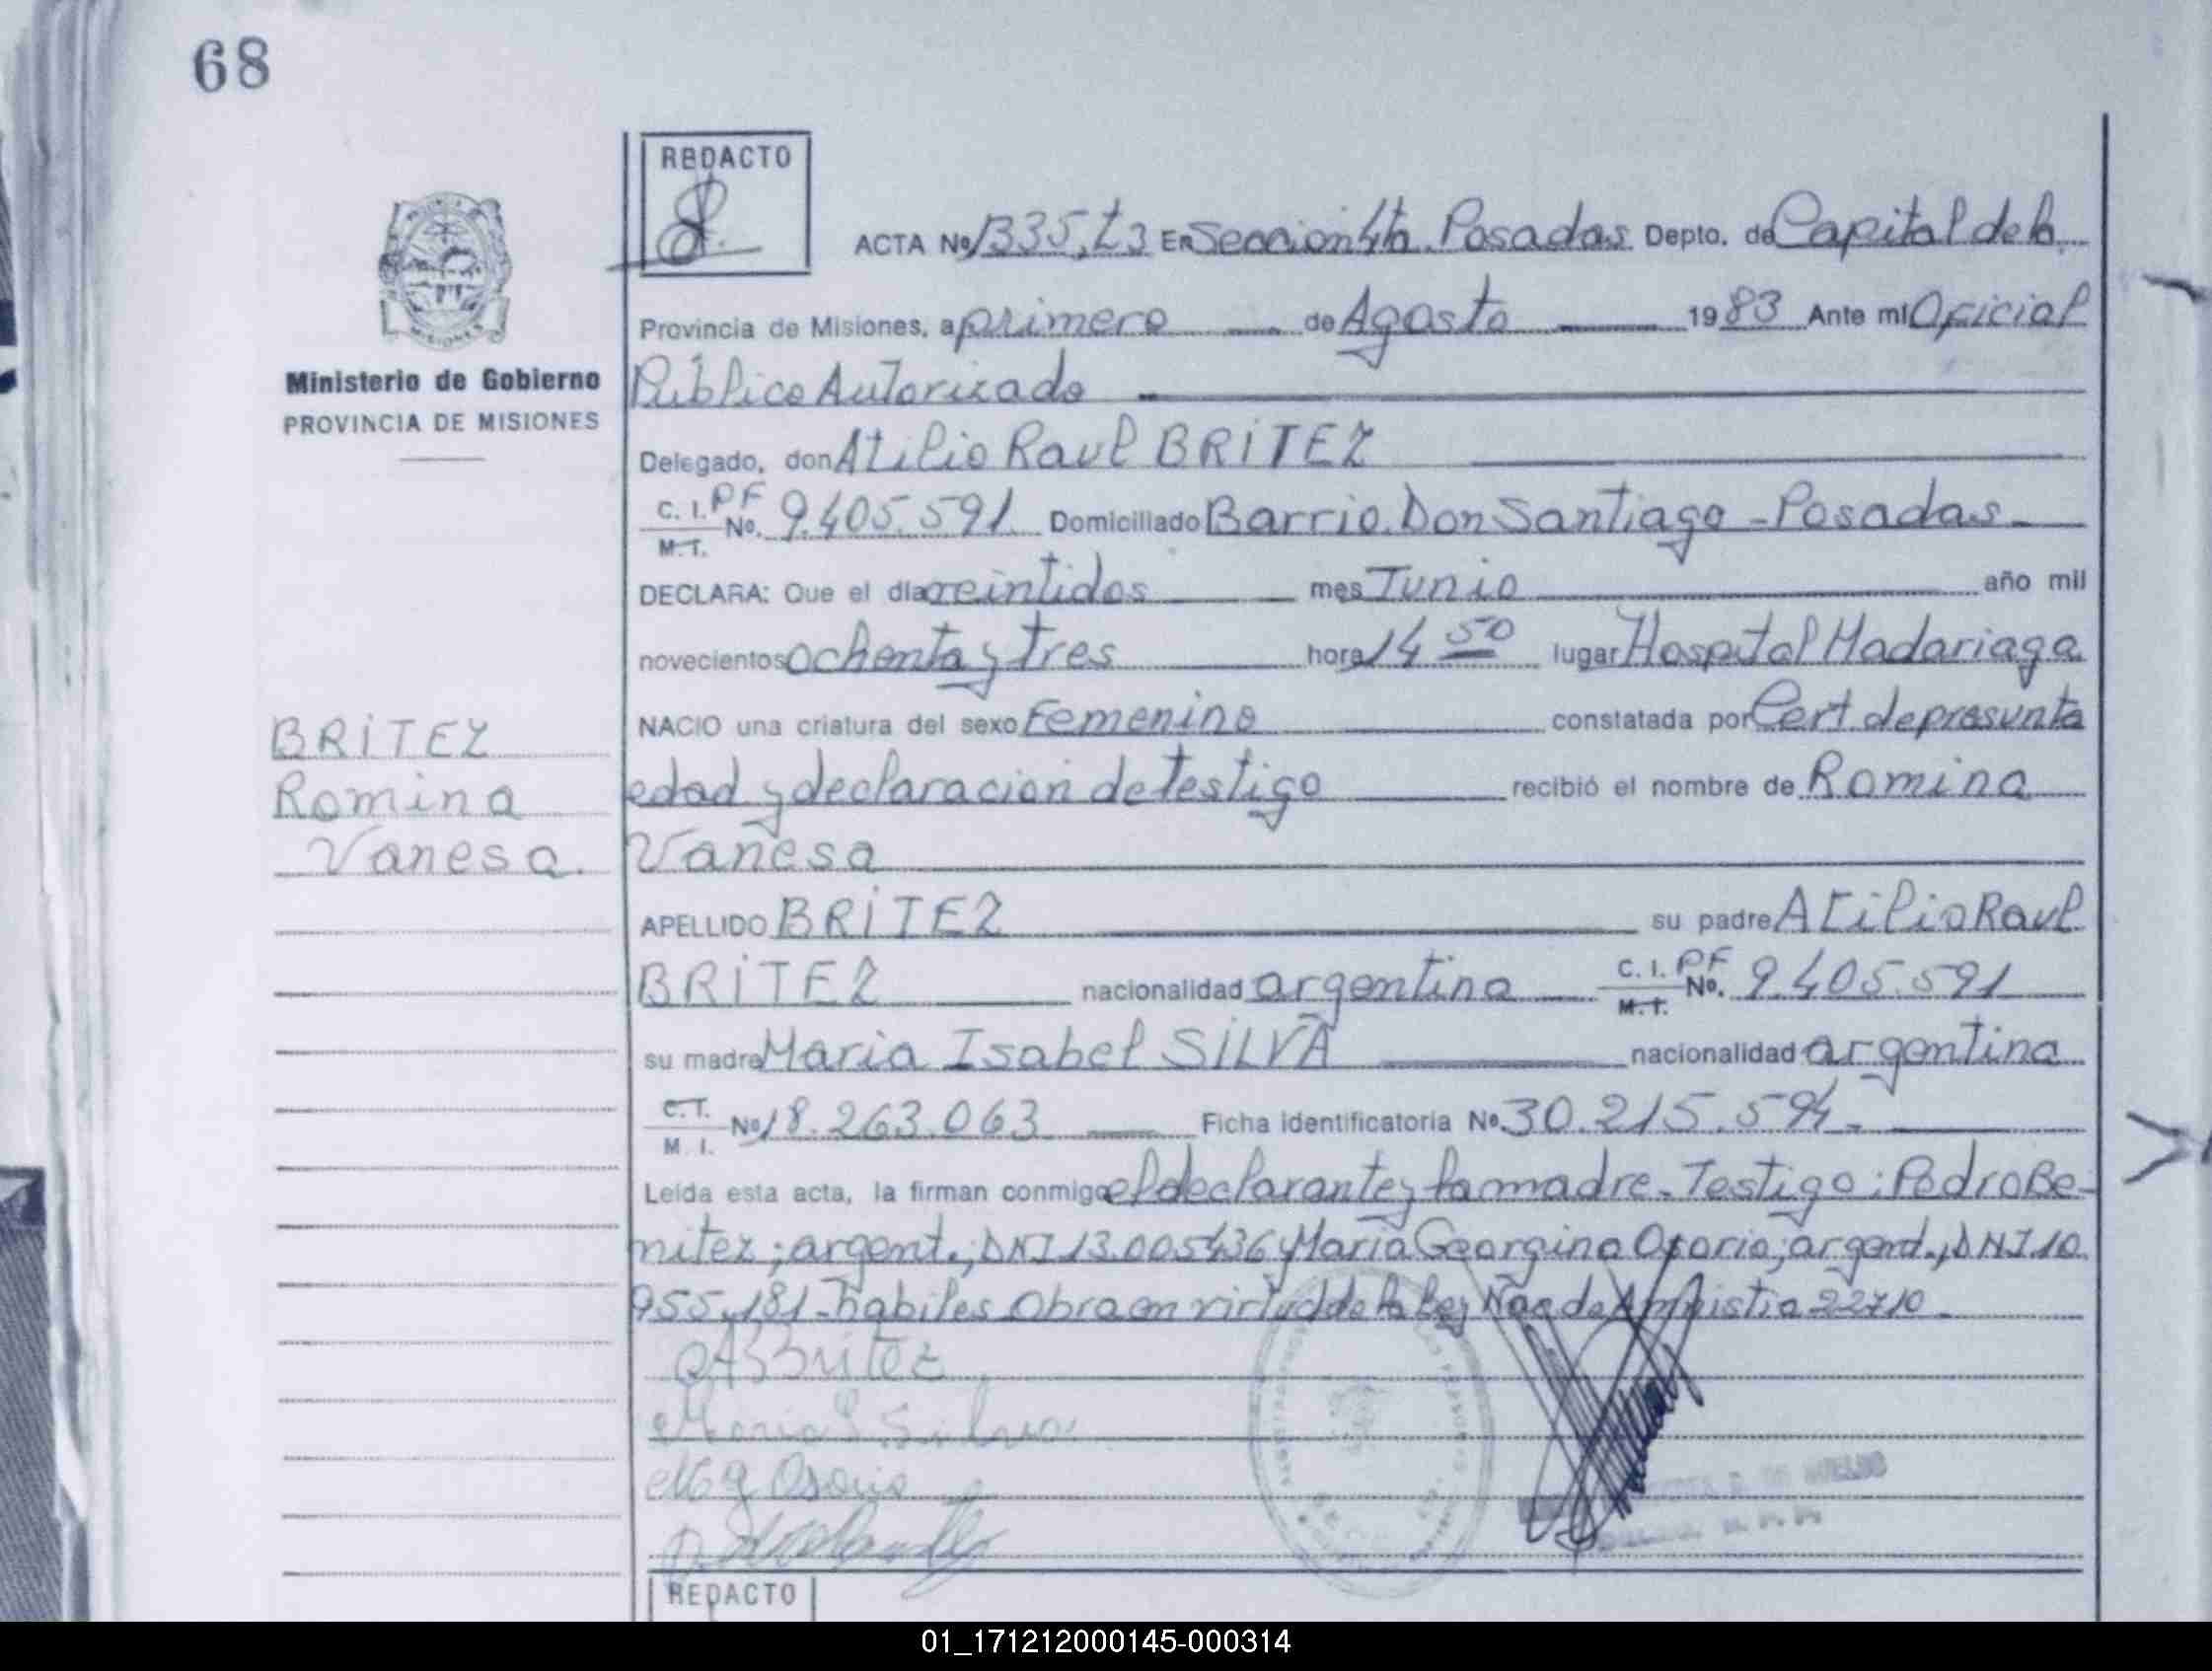 68
REDACTO
ACTA No 1335, T3 En Sección 4ta Posadas Depto. de Capital de la
Provincia de Misiones, a primero de Agosto 1983 Ante mí Oficial
Ministerio de Gobierno
PROVINCIA DE MISIONES
Público Autorizado
Delegado, don Atilio Raul BRITEZ
C. I. PF No. 9.405.591 Domiciliado Barrio Don Santiago - Posadas
M. I.
DECLARA: Que el día veintidos mes Junio año mil
novecientos ochenta y tres hora 14 50 lugar Hospital Madariaga
NACIO una criatura del sexo Femenino constatada por Cert. de presunta
edad y declaración de testigo recibió el nombre de Romina
Vanesa
BRITEZ
Romina
Vanesa.
APELLIDO BRITEZ su padre Atilio Raul
BRITEZ nacionalidad argentina C. I. PF No. 9.405.591
M. I.
su madre Maria Isabel SILVA nacionalidad argentina
C. I. No 18.263.063 Ficha identificatoria No. 30.215.594.-
M. I.
Leída esta acta, la firman conmigo el declarante y la madre. Testigo: Pedro Be-
nitez; argent.; DNI 13.005436 y Maria Georgina Osorio; argend., DNI 10.
955.181 - habiles Obra en virtud de la Ley Nac de Amnistia 22410 -
Britez
Maria I. Silva
M g Osorio
REDACTO
01_171212000145-000314